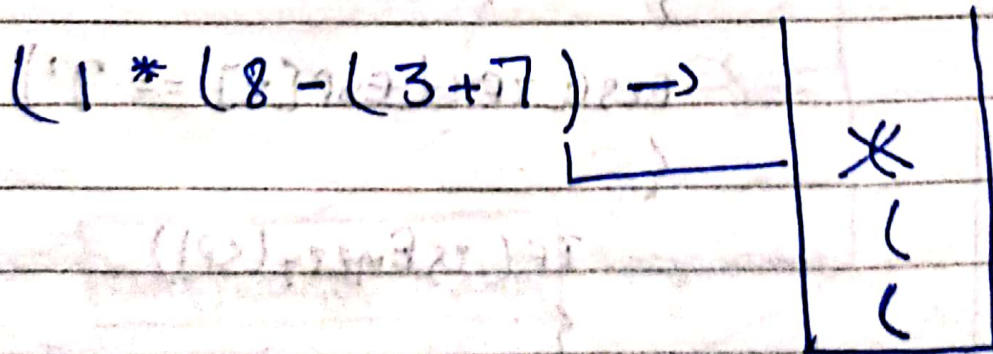 ( 1 * ( 8 - ( 3 + 7 ) →
(
(